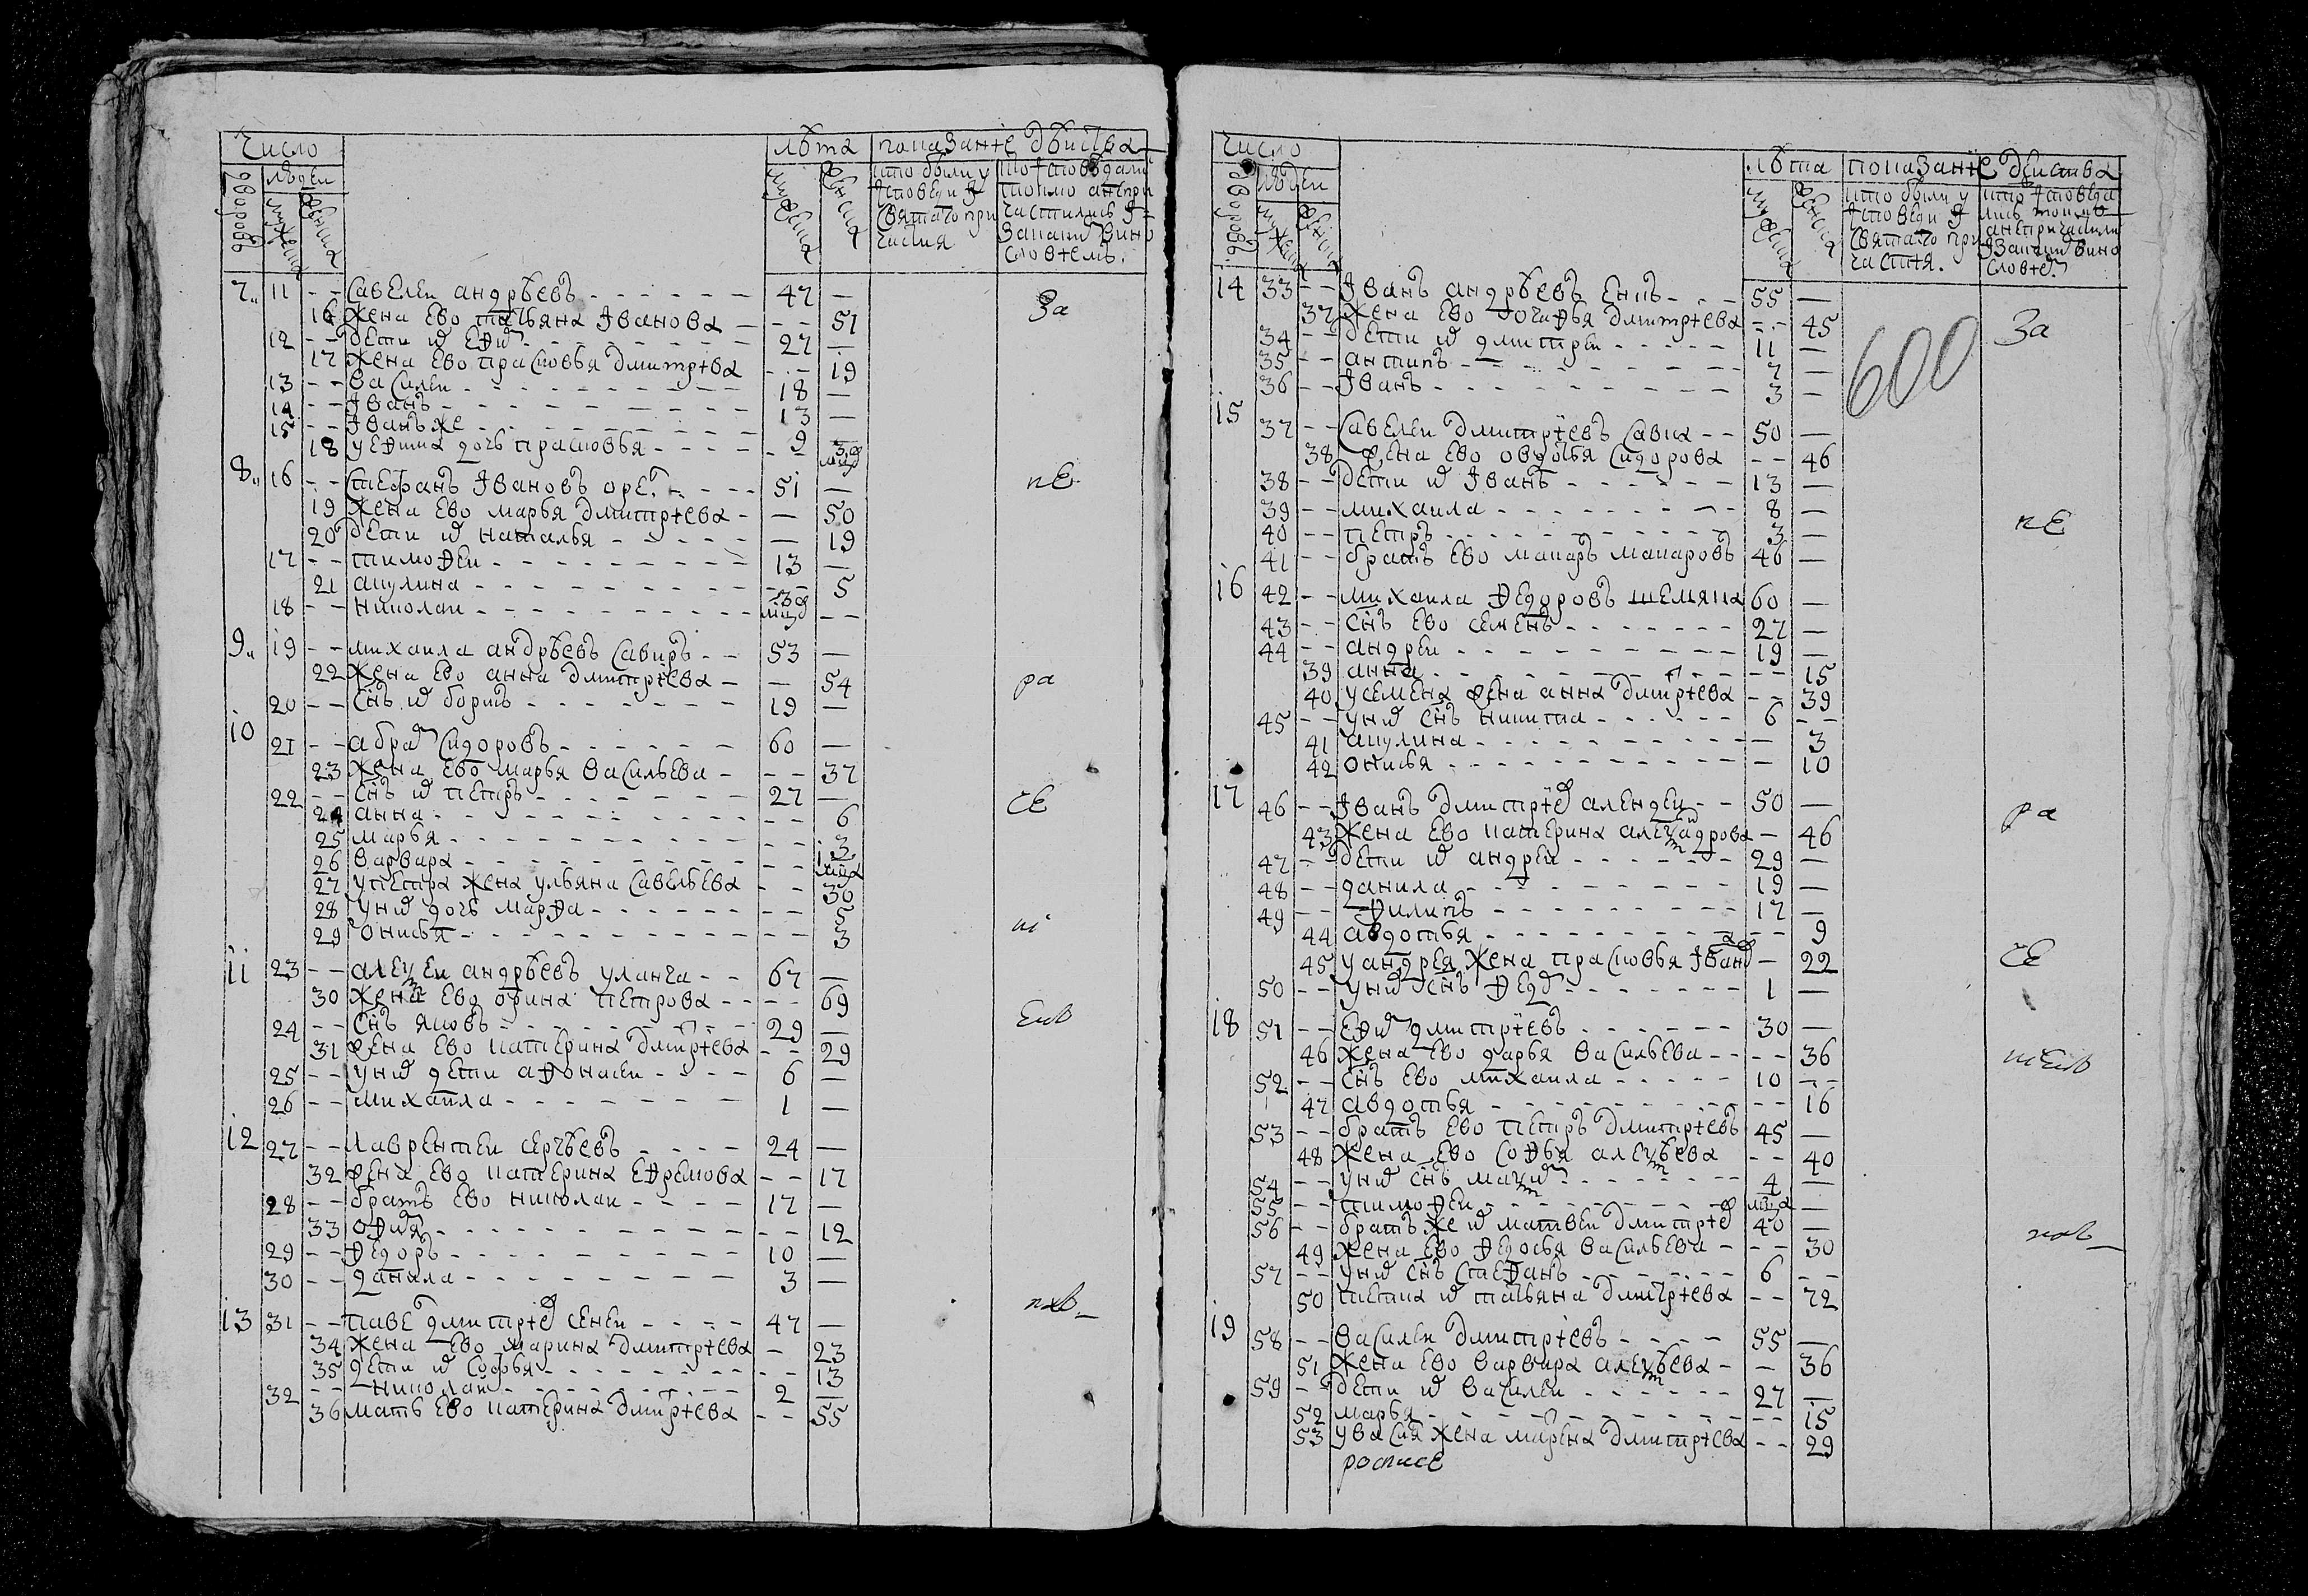 число лѣта показание действа
дворовъ людеи мужеска женска мужеска женска
кто были у исповеди и святаго причастия
кто исповедались токмо а не причастились и за каким винословием.
7 11 – – Савелеи андрѣевъ 47 —
16 жена ево татьяна Iванова – – 51
12 – – дети их Ефим 27 —
17 жена ево прасковья дмитриева – – 19
13 – – василеи 18 —
14 – – Iванъ 13 —
15 – – Iванъ же 9 —
18 у Ефима дочь прасковья – –
8 16 – – Стефанъ Iвановъ 51 —
19 жена ево марья дмитриева — 50
20 дети их наталья — 19
17 – – тимофеи 13 —
21 акулина – – 5
18 – – николаи – –
9 19 – – михаила андрѣевъ 53 —
22 жена ево анна дмитриева — 54
20 – – снъ их борисъ 19 —
10 21 – – абрам Сидоровъ 60 —
23 жена ево марья васильева – – 37
22 – – снъ их петръ 27 —
24 анна – – 6
25 марья – – 3
26 варвара – –
27 у петра жена ульяна савельева – – 30
28 у них дочь марфа – – 5
29 онисья – – 3
11 23 – – алексеи андрѣевъ 67 —
30 жена ево орина петрова – – 69
24 – – снъ яковъ 29 —
31 жена ево катерина дмитриева – – 29
25 – – у них дети афонасеи 6 —
26 – – михаила 1 —
12 27 – – лаврентеи сергѣевъ 24 —
32 жена ево катерина ефремова – – 17
28 – – братъ ево николаи 17 —
33 – – 12
29 – – федоръ 10 —
30 – – данила 3 —
13 31 – – паве дмитрие 47 —
34 жена ево марина дмитриева — 23
35 дети их софья – – 13
32 – – николаи 2 —
36 мать ево катерина дмитриева – – 55
За
пе
ра
се
ш
пхв
число лѣта показание действа
дворовъ людеи мужеска женска мужеска женска
кто были у исповеди и святаго причастия.
кто исповедались токмо а не причастили за каким винословие.
14 33 – – Iванъ андрѣевъ 55 —
37 жена ево дмитриева – – 45
34 – – дети их дмитреи 11 —
35 – – антипъ 7 —
36 – – Iванъ 3 —
600
15 37 – – Савелеи дмитриевъ 50 —
38 жена ево овдотья сидорова – – 46
38 – – дети их Iванъ 13 —
39 – – михаила 8 —
40 – – петръ 3 —
41 – – братъ ево макаръ макаровъ 46 —
16 42 – – михаила федоровъ шемяка 60 —
43 – – снъ ево семенъ 27 —
44 – – андреи 19 —
39 анна – – 15
40 у семена жена анна дмитриева – – 39
45 – – у них снъ никита 6 – –
41 акулина — 3
42 онисья — 10
17 46 – – Iванъ дмитрие 50 —
43 жена ево катерина александрова — 46
47 – – дети их андреи 29 —
48 – – данила 19 —
49 – – филипъ 17 —
44 авдотья – – 9
45 у андрея жена прасковья Iвано — 22
50 – – у них снъ федо 1 —
18 51 – – Ефим дмитриевъ 30 —
46 жена ево дарья васильева – – 36
52 – – снъ ево михаила 10 – –
47 авдотья – – 16
53 – – братъ ево петръ дмитриевъ 45 —
48 жена ево софья алексѣева – – 40
54 – – у них снъ максим 4 —
55 – – тимофеи —
56 – – братъ же их матвеи дмитрие 40 —
49 жена ево федосья васильева – – 30
57 – – у них снъ стефанъ 6 – –
50 тетка их татьяна дмитриева – – 72
19 58 – – василеи дмитриевъ 55 —
51 жена ево варвара алексѣева – – 36
59 – – дети их василеи 27 —
52 марья – – 15
53 у василя жена марена дмитриева – – 29
росписе
За
пе
ра
се
пхв